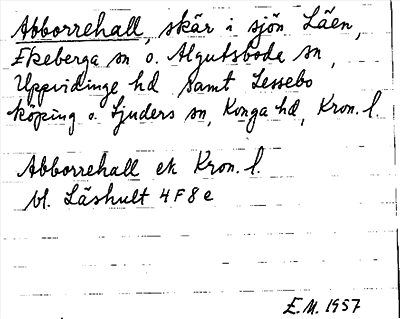 Abborrehall, skär i sjön Läen,
Ekeberga sn o. Algutsboda sn,
Uppvidinge hd samt Lessebo
köping o. Ljuders sn, Konga hd, Kron. l.
Abborrehall ek Kron. l.
bl. Läshult 4 F 8 e
E.M. 1957